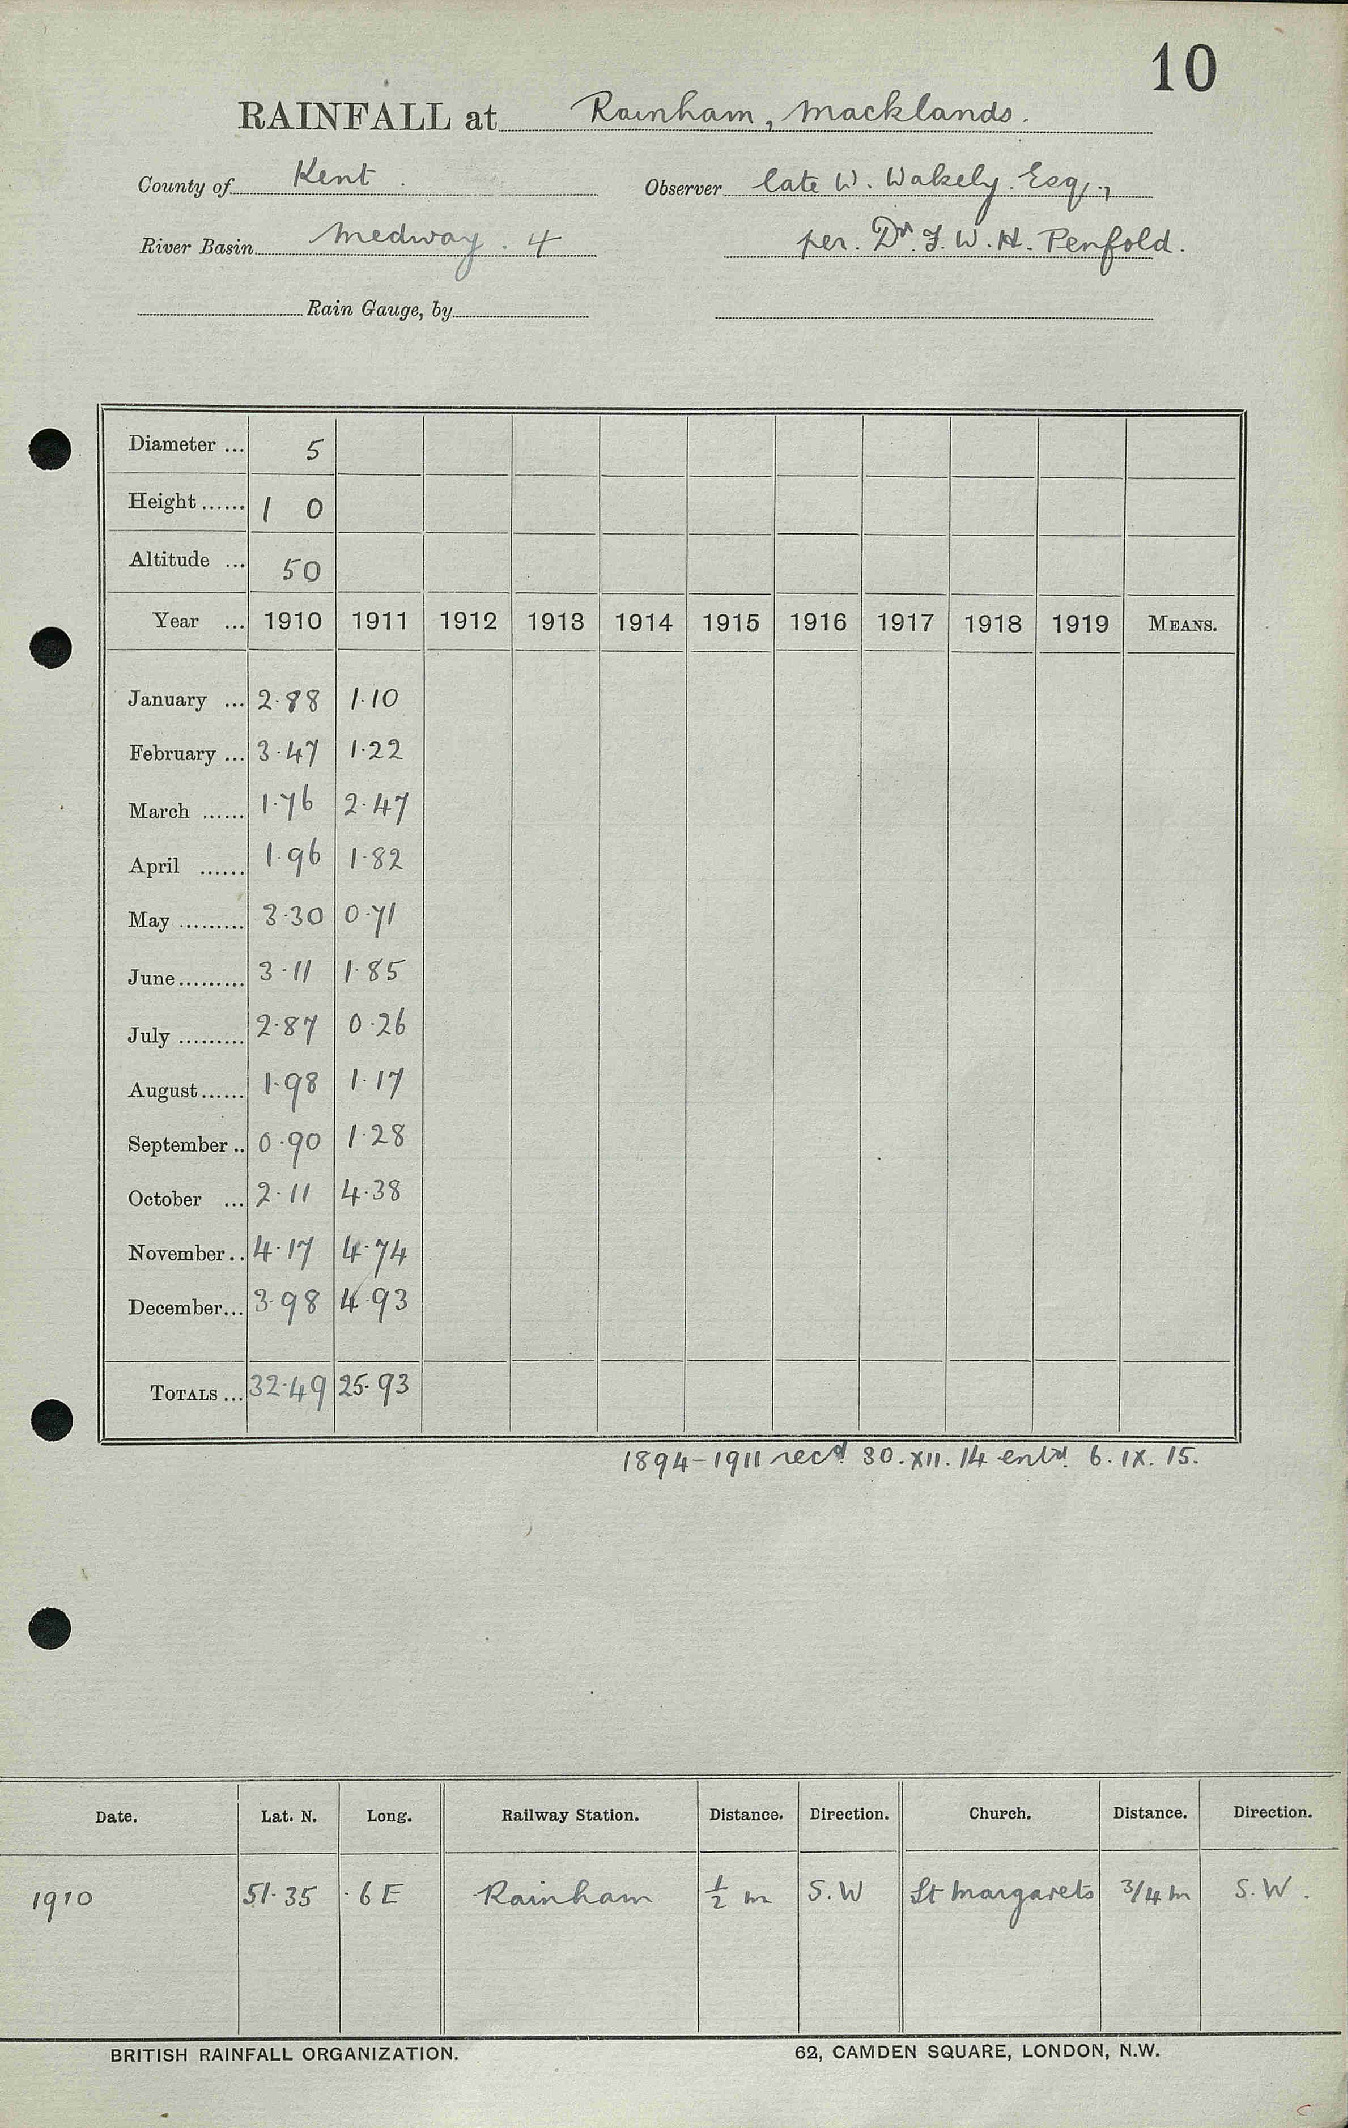 10
RAINFALL at Rainham, Macklands.
County of Kent. Observer late W. Wakely. Esq.,
River Basin Medway. 4 per. Dr. J. W. H. Penfold.
Rain Gauge, by
Diameter ... 5
Height ...... 1 0
Altitude ... 50
Year ... 1910 1911 1912 1913 1914 1915 1916 1917 1918 1919 MEANS.
January ... 2.88 1.10
February ... 3.47 1.22
March ...... 1.76 2.47
April ...... 1.96 1.82
May ......... 3.30 0.71
June......... 3.11 1.85
July ......... 2.87 0.26
August...... 1.98 1.17
September .. 0.90 1.28
October ... 2.11 4.38
November.. 4.17 4.74
December... 3.98 4.93
TOTALS ... 32.49 25.93
1894-1911 recd 30.XII.14 entd. 6.IX.15.
Date. Lat. N. Long. Railway Station. Distance. Direction. Church. Distance. Direction.
1910 51.35 .6 E Rainham 1/2 m S.W St Margarets 3/4 m S.W.
BRITISH RAINFALL ORGANIZATION. 62, CAMDEN SQUARE, LONDON, N.W.